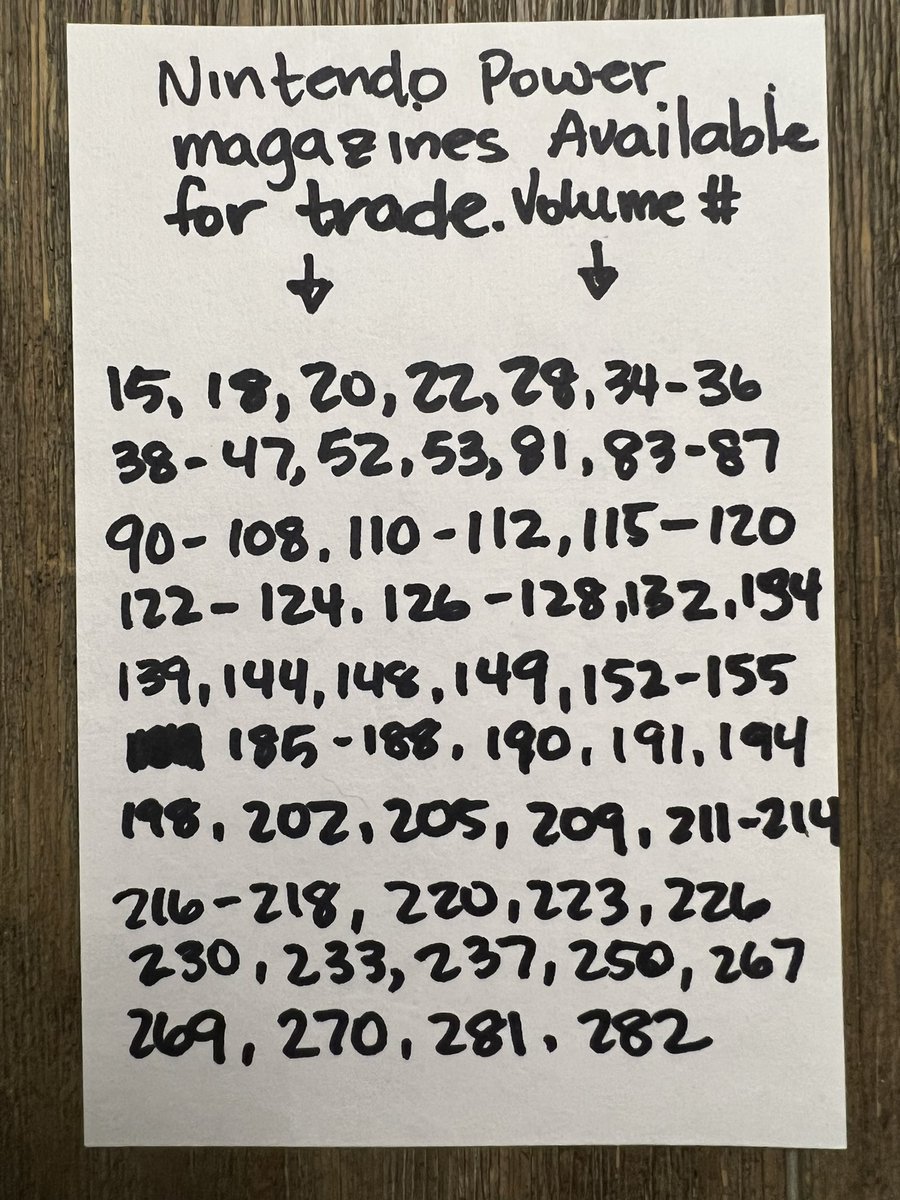 Nintendo Power
magazines Available
for trade. Volume #
15, 18, 20, 22, 28, 34-36
38-47, 52, 53, 81, 83-87
90-108, 110-112, 115-120
122-124, 126-128, 132, 134
139, 144, 148, 149, 152-155
185-188, 190, 191, 194
198, 202, 205, 209, 211-214
216-218, 220, 223, 226
230, 233, 237, 250, 267
269, 270, 281, 282